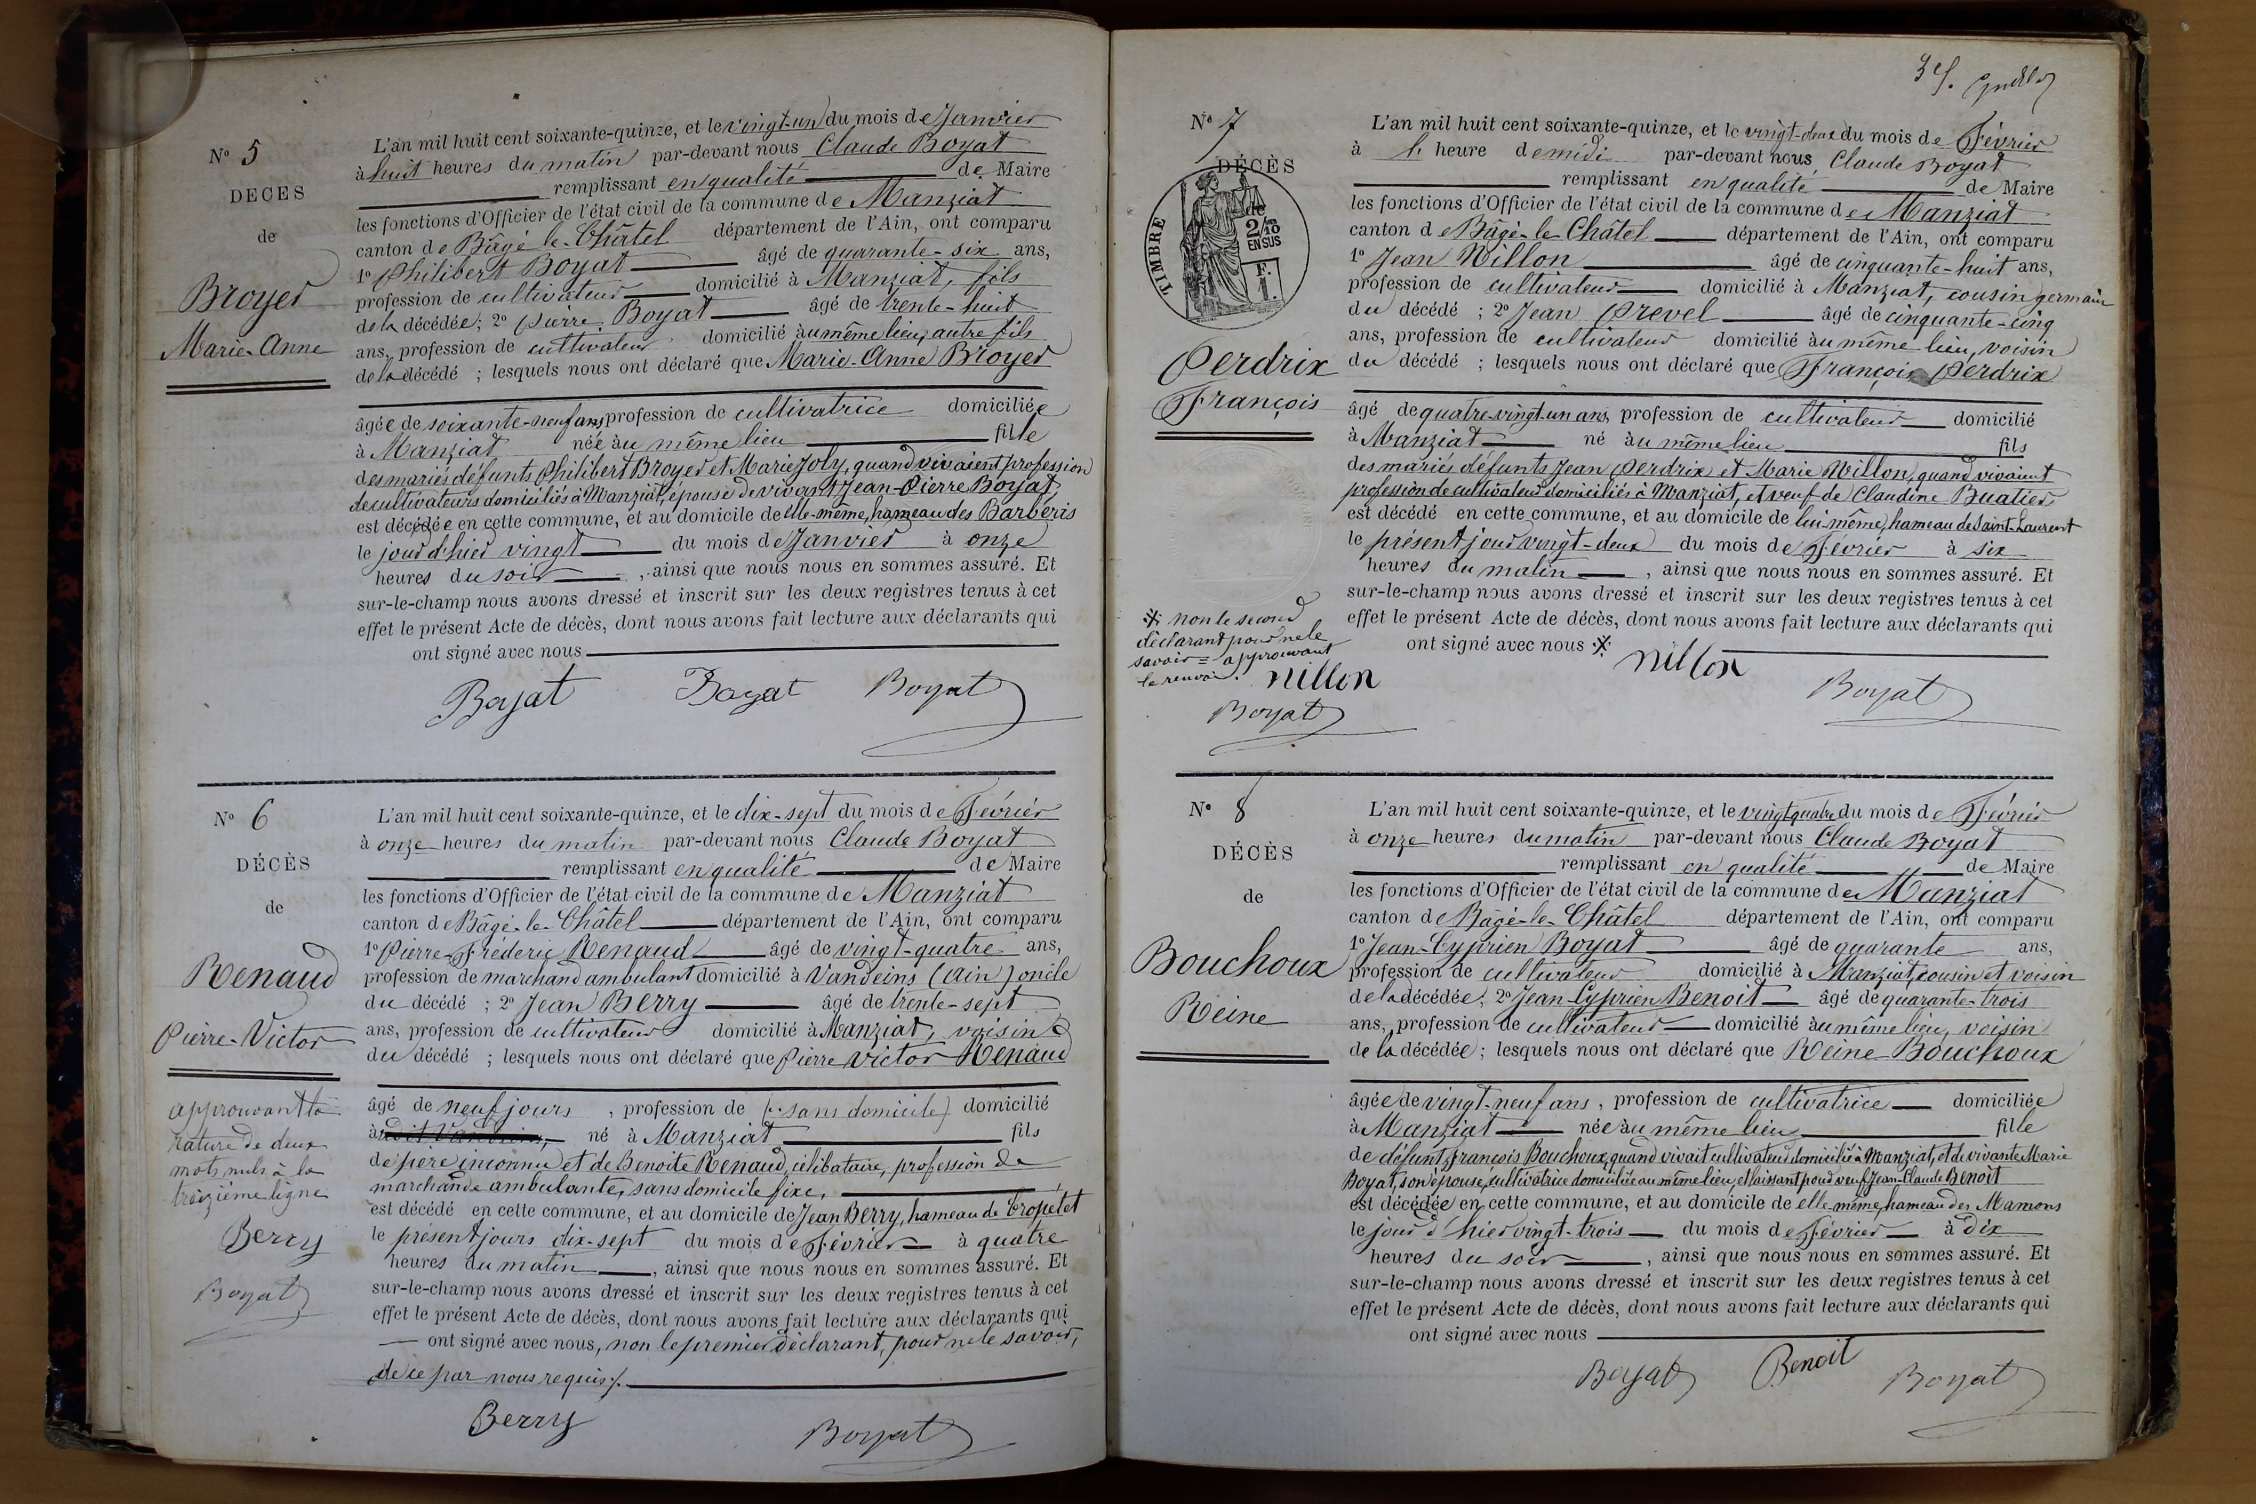 N° 5
DECES
de
Broyer
Marie-Anne
L'an mil huit cent soixante-quinze, et le vingt-un du mois de Janvier
à huit heures du matin par-devant nous Claude Boyat
remplissant en qualité de Maire
les fonctions d'Officier de l'état civil de la commune de Manziat
canton de Bâgé-le-Châtel département de l'Ain, ont comparu
1° Philibert Boyat âgé de quarante-six ans,
profession de cultivateur domicilié à Manziat, fils
de la décédée; 2° Pierre Boyat âgé de trente-huit
ans, profession de cultivateur domicilié au même lieu, autre fils
de la décédé ; lesquels nous ont déclaré que Marie-Anne Broyer
âgée de soixante-neuf ans, profession de cultivatrice domiciliée
à Manziat née au même lieu fille
des mariés défunts Philibert Broyer et Marie Joly, quand vivaient profession
de cultivateurs domiciliés à Manziat, épouse de vivant Jean-Pierre Boyat,
est décédée en cette commune, et au domicile de elle-même, hameau des Barberis
le jour d'hier vingt du mois de Janvier à onze
heures du soir , ainsi que nous nous en sommes assuré. Et
sur-le-champ nous avons dressé et inscrit sur les deux registres tenus à cet
effet le présent Acte de décès, dont nous avons fait lecture aux déclarants qui
ont signé avec nous
Boyat Boyat Boyat
N° 6
DÉCÈS
de
Renaud
Pierre-Victor
approuvant la
rature de deux
mots nuls à la
treizième ligne
Berry
Boyat
L'an mil huit cent soixante-quinze, et le dix-sept du mois de Février
à onze heures du matin par-devant nous Claude Boyat
remplissant en qualité de Maire
les fonctions d'Officier de l'état civil de la commune de Manziat
canton de Bâgé-le-Châtel département de l'Ain, ont comparu
1° Pierre-Fréderic Renaud âgé de vingt-quatre ans,
profession de marchand ambulant domicilié à Vandeins (Ain) oncle
du décédé ; 2° Jean Berry âgé de trente-sept
ans, profession de cultivateur domicilié à Manziat, voisin
du décédé ; lesquels nous ont déclaré que Pierre Victor Renaud
âgé de neuf jours , profession de (sans domicile) domicilié
à né à Manziat fils
de père inconnu et de Benoite Renaud, célibataire, profession de
marchande ambulante, sans domicile fixe,
est décédé en cette commune, et au domicile de Jean Berry, hameau de Cropetet
le présent jours dix-sept du mois de Février à quatre
heures du matin , ainsi que nous nous en sommes assuré. Et
sur-le-champ nous avons dressé et inscrit sur les deux registres tenus à cet
effet le présent Acte de décès, dont nous avons fait lecture aux déclarants qui
ont signé avec nous, non le premier déclarant, pour ne le savoir,
de ce par nous requis ./.
Berry Boyat
N° 7
DÉCÈS
de
TIMBRE
2/10
EN SUS
F.
1.
Perdrix
François
※ non le second
déclarant pour ne le
savoir = approuvant
le renvoi.
nillon
Boyat
L'an mil huit cent soixante-quinze, et le vingt-deux du mois de Février
à 1 heure de midi par-devant nous Claude Boyat
remplissant en qualité de Maire
les fonctions d'Officier de l'état civil de la commune de Manziat
canton de Bâgé-le-Châtel département de l'Ain, ont comparu
1° Jean Nillon âgé de cinquante-huit ans,
profession de cultivateur domicilié à Manziat, cousin germain
du décédé ; 2° Jean Prevel âgé de cinquante-cinq
ans, profession de cultivateur domicilié au même lieu, voisin
du décédé ; lesquels nous ont déclaré que François Perdrix
âgé de quatre-vingt-un ans, profession de cultivateur domicilié
à Manziat né au même lieu fils
des mariés défunts Jean Perdrix et Marie Nillon, quand vivaient
profession de cultivateur domiciliés à Manziat, et veuf de Claudine Buatier,
est décédé en cette commune, et au domicile de lui-même, hameau de Saint-Laurent
le présent jour vingt-deux du mois de Février à six
heures du matin , ainsi que nous nous en sommes assuré. Et
sur-le-champ nous avons dressé et inscrit sur les deux registres tenus à cet
effet le présent Acte de décès, dont nous avons fait lecture aux déclarants qui
ont signé avec nous ※
nillon
Boyat
N° 8
DÉCÈS
de
Bouchoux
Reine
L'an mil huit cent soixante-quinze, et le vingt-quatre du mois de Février
à onze heures du matin par-devant nous Claude Boyat
remplissant en qualité de Maire
les fonctions d'Officier de l'état civil de la commune de Manziat
canton de Bâgé-le-Châtel département de l'Ain, ont comparu
1° Jean-Cyprien Boyat âgé de quarante ans,
profession de cultivateur domicilié à Manziat, cousin et voisin
de la décédée; 2° Jean-Cyprien Benoit âgé de quarante-trois
ans, profession de cultivateur domicilié au même lieu, voisin
de la décédée ; lesquels nous ont déclaré que Reine Bouchoux
âgée de vingt-neuf ans , profession de cultivatrice domiciliée
à Manziat née au même lieu fille
de défunt François Bouchoux, quand vivait cultivateur domicilié à Manziat, et de vivante Marie
Boyat, son épouse, cultivatrice domiciliée au même lieu, et laissant pour veuf Jean-Claude Benoit
est décédée en cette commune, et au domicile de elle-même, hameau des Mamons
le jour d'hier vingt-trois du mois de Février à dix
heures du soir , ainsi que nous nous en sommes assuré. Et
sur-le-champ nous avons dressé et inscrit sur les deux registres tenus à cet
effet le présent Acte de décès, dont nous avons fait lecture aux déclarants qui
ont signé avec nous
Boyat Benoit Boyat